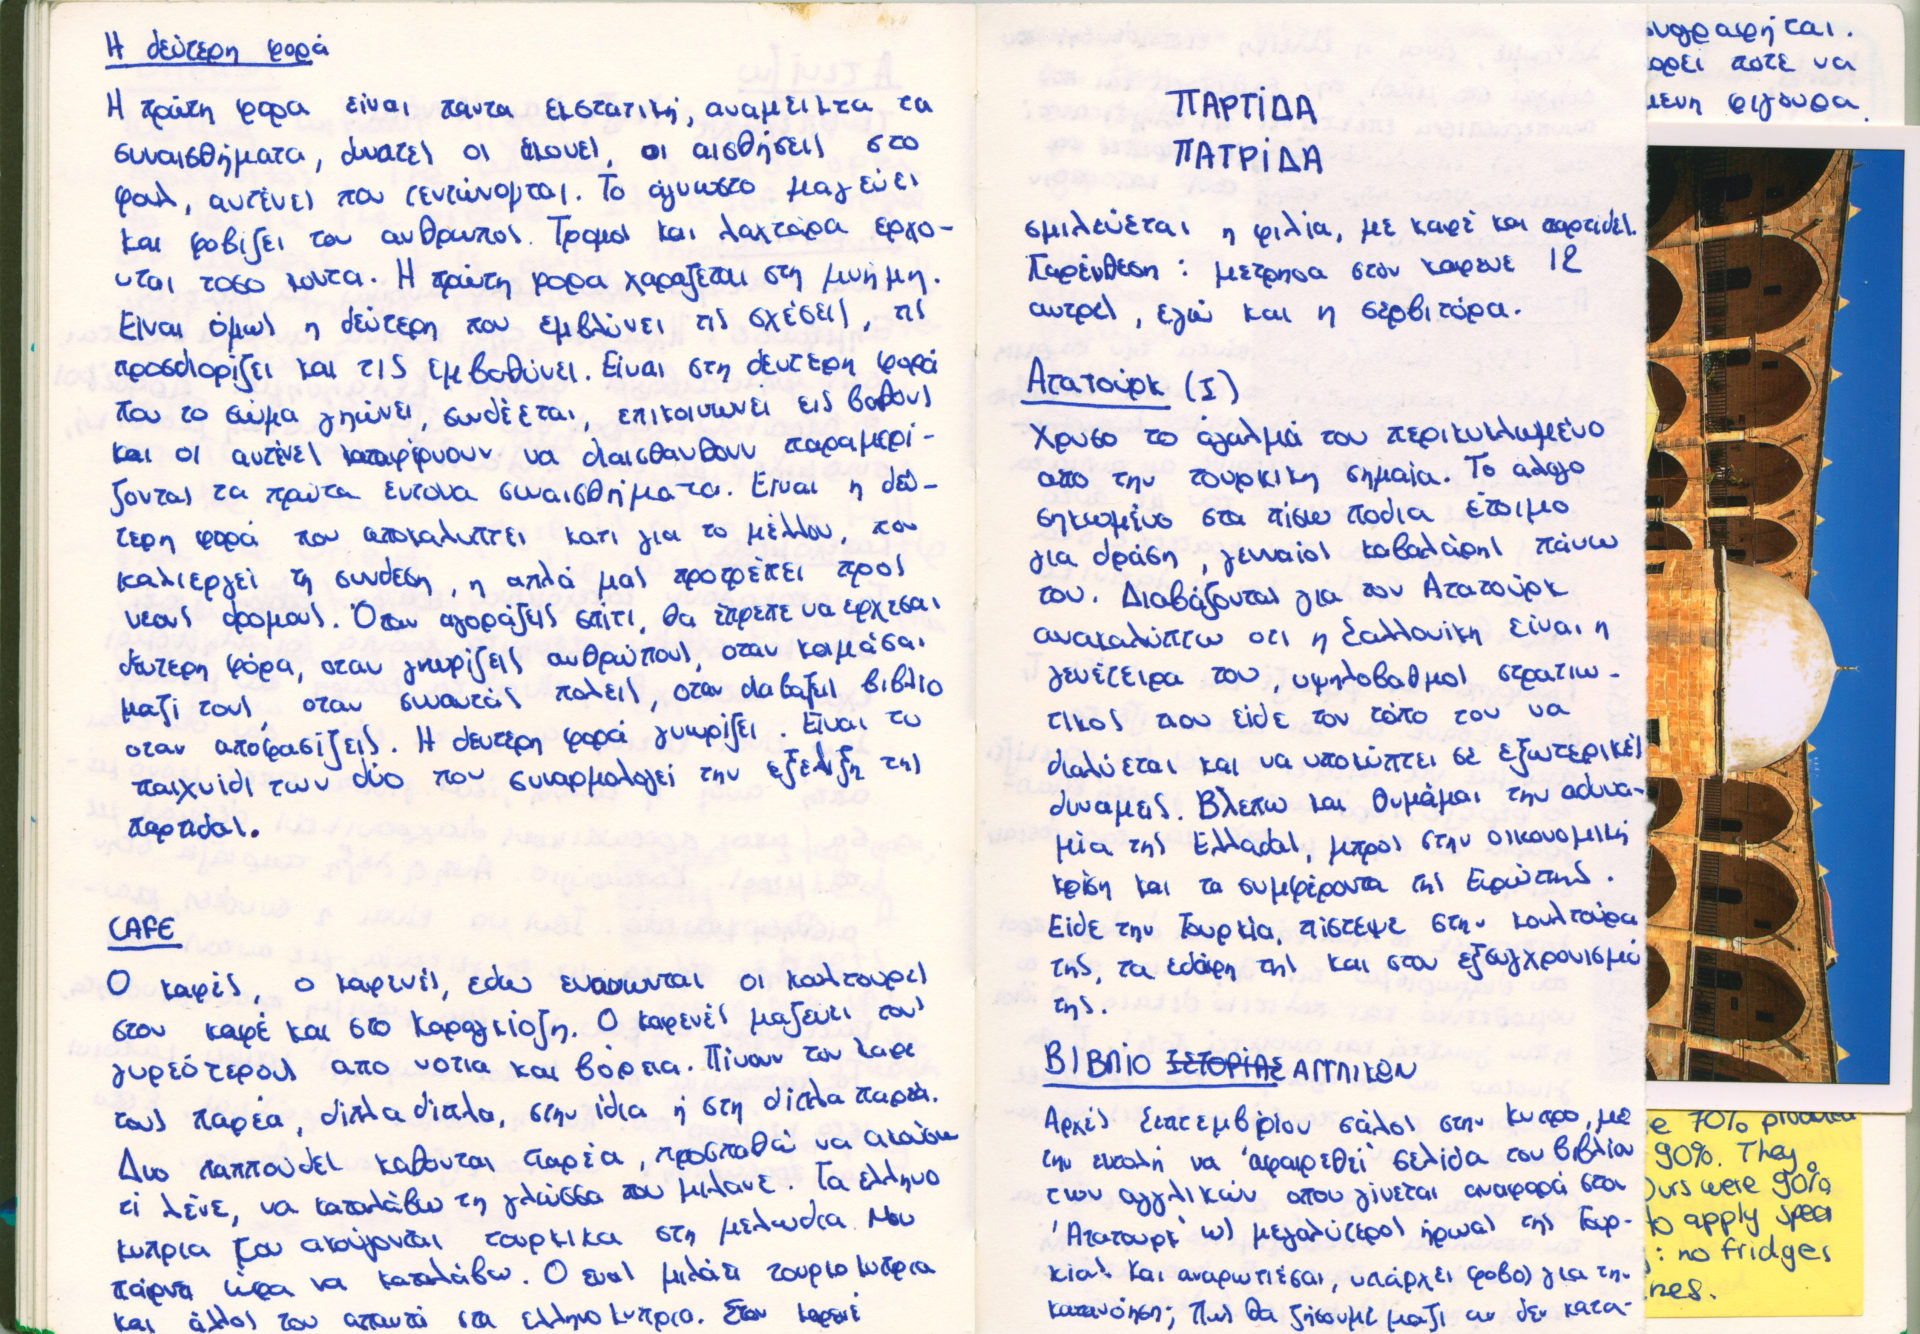 Η δεύτερη φορά
Η πρώτη φορα είναι παντα εκστατική, αναμεικτα τα
συναισθήματα, δυνατες οι εικονες, οι αισθήσεις στο
φουλ, αυτένες που τεντώνονται. Το άγνωστο μαγεύει
και φοβιζει τον ανθρωπο. Τρομος και λαχταρα ερχο-
νται τοσο κοντα. Η πρώτη φορα χαραζεται στη μνήμη.
Είναι όμως η δεύτερη που εμβαθύνει τις σχέσεις, τις
προσδιορίζει και τις εμβαθύνει. Είναι στη δευτερη φορά
που το σώμα γειώνει, συνδέεται, επικοινωνει εις βαθους
και οι αυτένες καταφέρνουν να διαισθανθουν παραμερί-
ζοντας τα πρώτα έντονα συναισθήματα. Είναι η δεύ-
τερη φορά που αποκαλυπτει κατι για το μέλλον, που
καλιεργεί τη συνδεση, η απλά μας προτρέπει προς
νεους δρομους. Οταν αγοράζεις σπίτι, θα έπρεπε να ερχεσαι
δευτερη φόρα, οταν γνωρίζεις ανθρώπους, οταν κοιμάσαι
μαζί τους, οταν συναντάς πολεις, οταν διαβαζεις βιβλιο
οταν αποφασίζεις. Η δευτερη φορά γνωρίζει. Είναι το
παιχνίδι των δύο που συναρμολογεί την εξελιξη της
παρτιδας.
CAFE
Ο καφές, ο καφενές, εδω ενωνονται οι κουλτουρες
στον καφέ και στο Καραγκιόζη. Ο καφενές μαζεύει τους
γυρεότερους απο νοτια και βόρεια. Πίνουν τον καφε
τους παρέα, δίπλα δίπλα, στην ίδια ή στη δίπλα παρέα.
Δυο παππούδες καθονται παρέα, προσπαθώ να ακούσω
τί λένε, να καταλάβω τη γλώσσα που μιλανε. Τα ελληνο
κυπρια ζου ακούγονται τουρκικα στη μελωδια. Μου
παίρνει ώρα να καταλάβω. Ο ενας μιλάει τουρκο κυπρια
και άλλος του απαντά στα ελληνο κυπρια. Στον καφενέ
ΠΑΡΤΙΔΑ
ΠΑΤΡΙΔΑ
σμιλεύεται η φιλία, με καφέ και παρτίδες.
Παρένθεση: μετρησα στον καφενε 12
αντρες, εγώ και η σερβιτόρα.
Ατατούρκ (I)
Χρυσο το άγαλμά του περικυκλωμένο
απο την τουρκικη σημαία. Το αλογο
σηκωμένο στα πίσω ποδια έτοιμο
για δράση, γενναίος καβαλάρης πάνω
του. Διαβάζοντας για τον Ατατούρκ
ανακαλύπτω οτι η Σαλλονίκη είναι η
γενέτειρα του υψηλοβαθμος στρατιω-
τικος που είδε τον τόπο του να
διαλύεται και να υποκύπτει σε εξωτερικές
δυναμεις. Βλεπω και θυμάμαι την αδυνα-
μία της Ελλαδας, μπρος στην οικονομική
κρίση και τα συμφέροντα της Ευρώπης.
Είδε την Τουρκία, πίστεψε στην κουλτούρα
της, τα εδάφη της και στον εξσυγχρονισμό
της.
ΒΙΒΛΙΟ ΙΣΤΟΡΙΑΣ ΑΓΓΛΙΚΩΝ
Αρχές Σεπτεμβρίου σάλος στην Κυπρο, με
την εντολή να 'αφαιρεθεί' σελίδα του βιβλίου
των αγγλικών οπου γίνεται αναφορά στον
'Ατατουρκ' ως μεγαλύτερος ήρωας της Τουρ-
κίας. Και αναρωτιέσαι, υπάρχει φοβος για την
κατανόηση; Πως θα ζήσουμε μαζι αν δεν κατα-
υγραφήται.
ορεί ποτε να
μενη φιγουρα.
e 70% produced
90%. They
ours were 90%
to apply spec
: no fridges
nes.